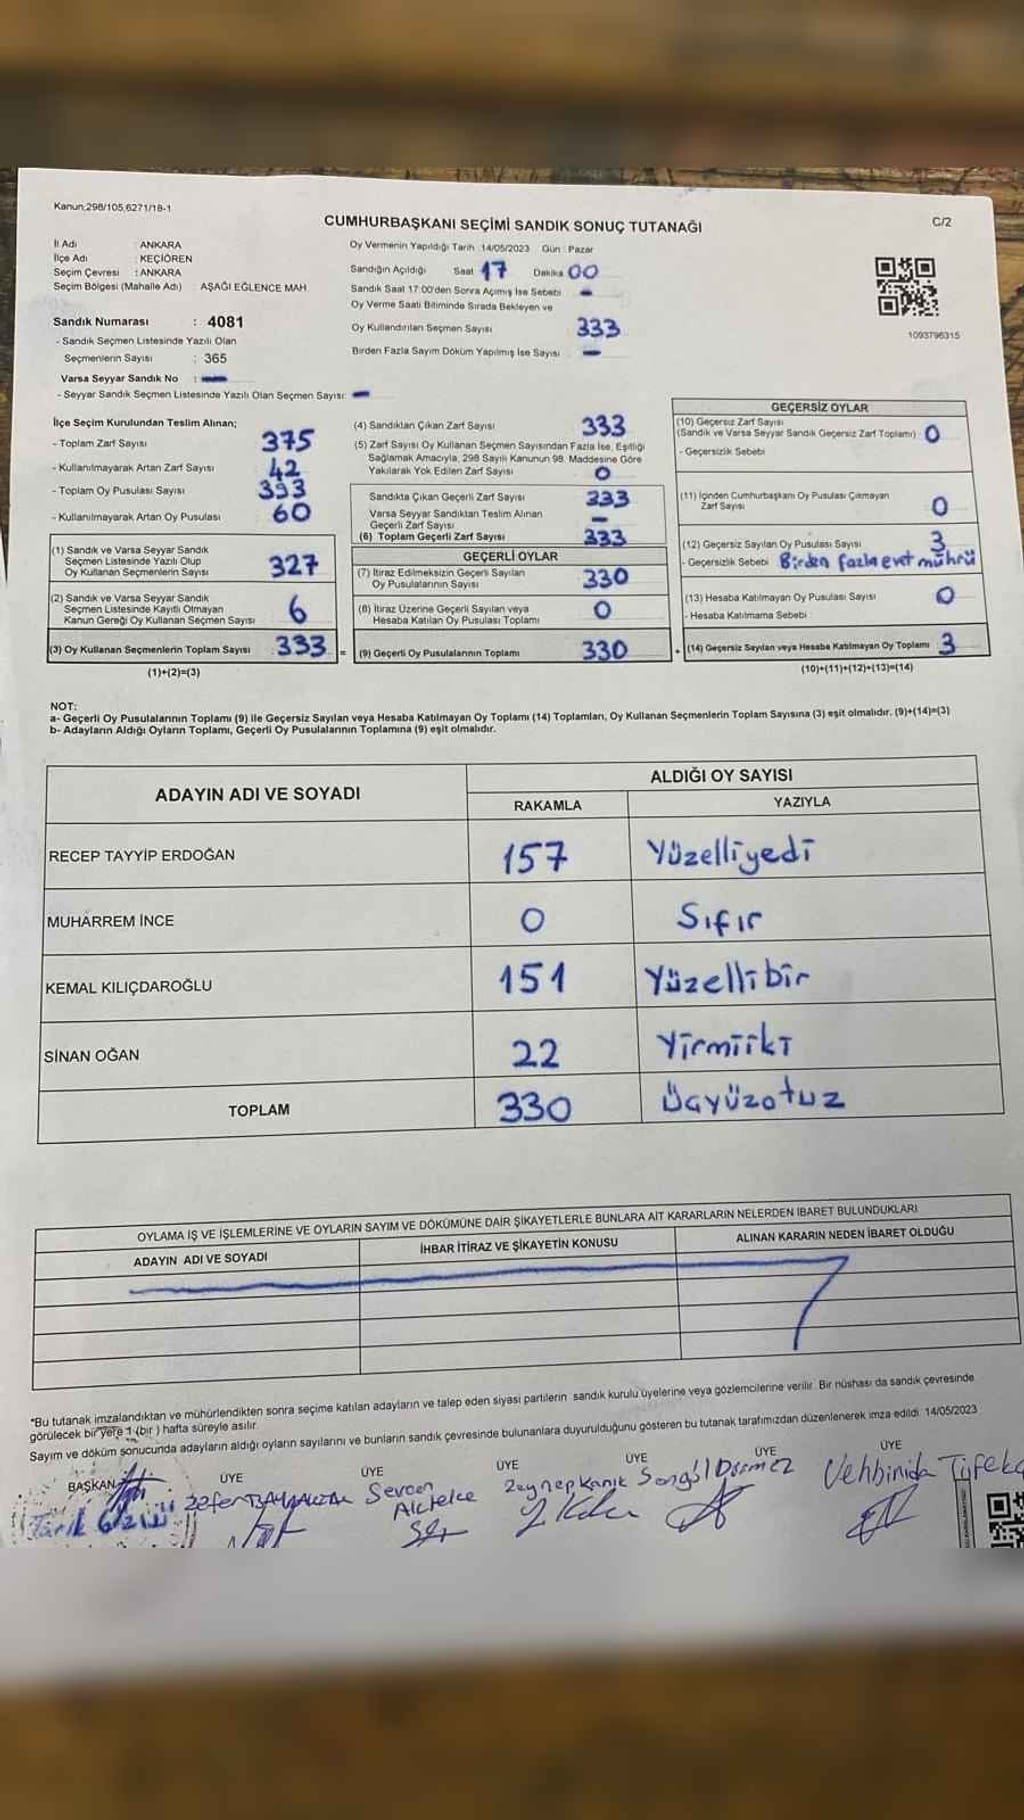 Kanun;298/105,6271/18-1
CUMHURBAŞKANI SEÇİMİ SANDIK SONUÇ TUTANAĞI
C/2
İl Adı : ANKARA
İlçe Adı : KEÇİÖREN
Seçim Çevresi : ANKARA
Seçim Bölgesi (Mahalle Adı) AŞAĞI EĞLENCE MAH.
Sandık Numarası : 4081
- Sandık Seçmen Listesinde Yazılı Olan
Seçmenlerin Sayısı : 365
Varsa Seyyar Sandık No : -
- Seyyar Sandık Seçmen Listesinde Yazılı Olan Seçmen Sayısı: -
Oy Vermenin Yapıldığı Tarih : 14/05/2023 Gün : Pazar
Sandığın Açıldığı Saat 17 Dakika 00
Sandık Saat 17:00'den Sonra Açılmış İse Sebebi -
Oy Verme Saati Bitiminde Sırada Bekleyen ve
Oy Kullandırılan Seçmen Sayısı 333
Birden Fazla Sayım Döküm Yapılmış İse Sayısı -
1093796315
İlçe Seçim Kurulundan Teslim Alınan;
- Toplam Zarf Sayısı 375
- Kullanılmayarak Artan Zarf Sayısı 42
- Toplam Oy Pusulası Sayısı 393
- Kullanılmayarak Artan Oy Pusulası 60
(1) Sandık ve Varsa Seyyar Sandık
Seçmen Listesinde Yazılı Olup
Oy Kullanan Seçmenlerin Sayısı 327
(2) Sandık ve Varsa Seyyar Sandık
Seçmen Listesinde Kayıtlı Olmayan
Kanun Gereği Oy Kullanan Seçmen Sayısı 6
(3) Oy Kullanan Seçmenlerin Toplam Sayısı 333 =
(1)+(2)=(3)
(4) Sandıktan Çıkan Zarf Sayısı 333
(5) Zarf Sayısı Oy Kullanan Seçmen Sayısından Fazla İse, Eşitliği
Sağlamak Amacıyla, 298 Sayılı Kanunun 98. Maddesine Göre
Yakılarak Yok Edilen Zarf Sayısı 0
Sandıkta Çıkan Geçerli Zarf Sayısı 333
Varsa Seyyar Sandıktan Teslim Alınan
Geçerli Zarf Sayısı -
(6) Toplam Geçerli Zarf Sayısı 333
GEÇERLİ OYLAR
(7) İtiraz Edilmeksizin Geçerli Sayılan
Oy Pusulalarının Sayısı 330
(8) İtiraz Üzerine Geçerli Sayılan veya
Hesaba Katılan Oy Pusulası Toplamı 0
(9) Geçerli Oy Pusulalarının Toplamı 330 +
GEÇERSİZ OYLAR
(10) Geçersiz Zarf Sayısı
(Sandık ve Varsa Seyyar Sandık Geçersiz Zarf Toplamı) : 0
- Geçersizlik Sebebi
(11) İçinden Cumhurbaşkanı Oy Pusulası Çıkmayan
Zarf Sayısı 0
(12) Geçersiz Sayılan Oy Pusulası Sayısı 3
- Geçersizlik Sebebi Birden fazla evet mührü
(13) Hesaba Katılmayan Oy Pusulası Sayısı 0
- Hesaba Katılmama Sebebi
(14) Geçersiz Sayılan veya Hesaba Katılmayan Oy Toplamı 3
(10)+(11)+(12)+(13)=(14)
NOT:
a- Geçerli Oy Pusulalarının Toplamı (9) ile Geçersiz Sayılan veya Hesaba Katılmayan Oy Toplamı (14) Toplamları, Oy Kullanan Seçmenlerin Toplam Sayısına (3) eşit olmalıdır. (9)+(14)=(3)
b- Adayların Aldığı Oyların Toplamı, Geçerli Oy Pusulalarının Toplamına (9) eşit olmalıdır.
ADAYIN ADI VE SOYADI
ALDIĞI OY SAYISI
RAKAMLA YAZIYLA
RECEP TAYYİP ERDOĞAN 157 Yüzelliyedi
MUHARREM İNCE 0 Sıfır
KEMAL KILIÇDAROĞLU 151 Yüzellibir
SİNAN OĞAN 22 Yirmiiki
TOPLAM 330 Üçyüzotuz
OYLAMA İŞ VE İŞLEMLERİNE VE OYLARIN SAYIM VE DÖKÜMÜNE DAİR ŞİKAYETLERLE BUNLARA AİT KARARLARIN NELERDEN İBARET BULUNDUKLARI
ADAYIN ADI VE SOYADI İHBAR İTİRAZ VE ŞİKAYETİN KONUSU ALINAN KARARIN NEDEN İBARET OLDUĞU
*Bu tutanak imzalandıktan ve mühürlendikten sonra seçime katılan adayların ve talep eden siyasi partilerin sandık kurulu üyelerine veya gözlemcilerine verilir. Bir nüshası da sandık çevresinde
görülecek bir yere 1 (bir) hafta süreyle asılır.
Sayım ve döküm sonucunda adayların aldığı oyların sayılarını ve bunların sandık çevresinde bulunanlara duyurulduğunu gösteren bu tutanak tarafımızdan düzenlenerek imza edildi. 14/05/2023
BAŞKAN ÜYE ÜYE ÜYE ÜYE ÜYE ÜYE
Tarık Zafer Sevcen Zeynep Kanık Songül Dönmez Vehbinida Tüfekç